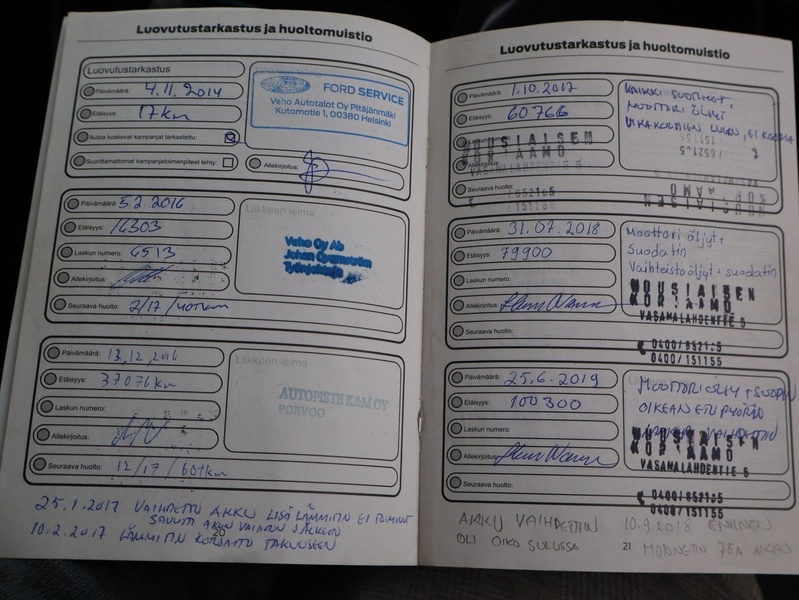 Luovutustarkastus ja huoltomuistio
Luovutustarkastus
Liikkeen leima
Päivämäärä: 4.11.2014
FORD SERVICE
Veho Autotalot Oy Pitäjänmäki
Kutomotie 1, 00380 Helsinki
Etäisyys: 17km
Autoa koskevat kampanjat tarkastettu:
Suorittamattomat kampanjatoimenpiteet tehty:
Allekirjoitus:
Päivämäärä: 5.2.2016
Liikkeen leima
Etäisyys: 16303
Veho Oy Ab
Laskun numero: 6513
Allekirjoitus:
Seuraava huolto: 2/17/40tkm
Päivämäärä: 13.12.2016
Liikkeen leima
Etäisyys: 37076km
AUTOPISTE K&M OY
PORVOO
Laskun numero:
Allekirjoitus:
Seuraava huolto: 12/17/60tkm
25.1.2017 VAIHDETTU AKKU LISÄLÄMMITIN EI TOIMINUT
AKUN VAIHDON JÄLKEEN
10.2.2017 LÄMMITIN KORJATTU TAKUUSEEN
20
Luovutustarkastus ja huoltomuistio
Päivämäärä: 1.10.2017
KAIKKI SUODATTIMET,
Etäisyys: 60766
MOOTTORI ÖLJYT
VIKAKOODIEN LUKU, EI KOODIA
UUSIAISEN
Allekirjoitus:
Seuraava huolto:
Päivämäärä: 31.07.2018
Moottori öljyt,
Etäisyys: 79900
Suodatin
Laskun numero:
Vaihteistoöljyt + suodatin
Allekirjoitus:
UUSIAISEN
KORJAAMO
VASARALAHDENTIE 5
Seuraava huolto:
0400/652125
0400/151155
Päivämäärä: 25.6.2019
MOOTTORI ÖLJY +
Etäisyys: 100300
OIKEAN ETUPYÖRÄN
Laskun numero:
VAIHDETTIIN
UUSIAISEN
Allekirjoitus:
KORJAAMO
VASARALAHDENTIE 5
Seuraava huolto:
0400/652125
0400/151155
AKKU VAIHDETTIIN 10.9.2018 ENTINEN
OLI OIKO SULUSSA
21
75A AKKU